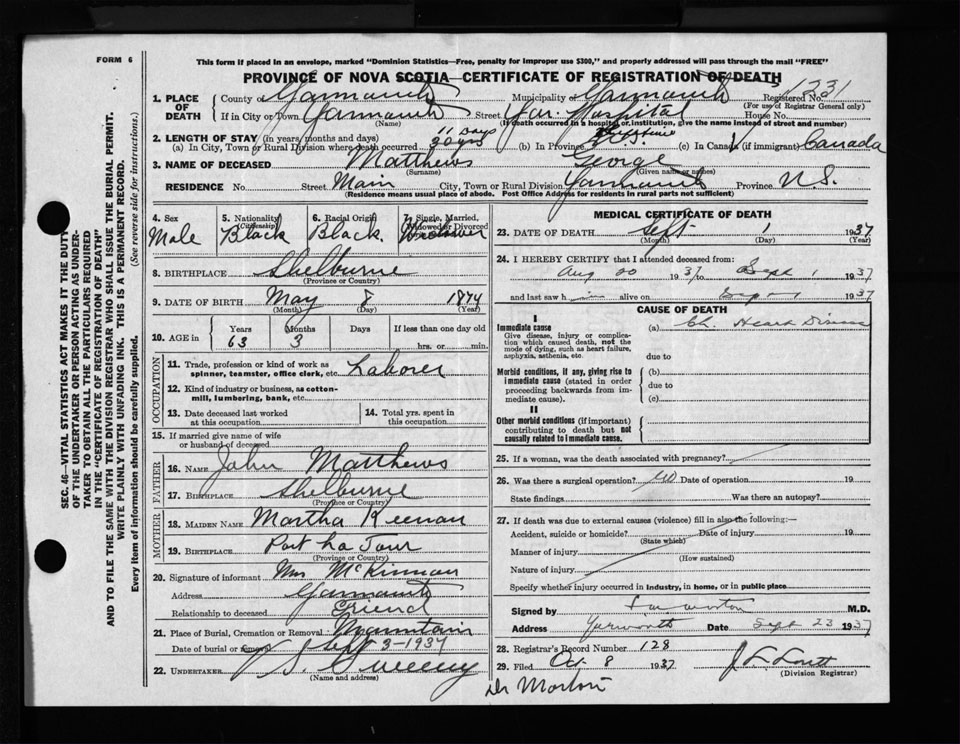 FORM 6
This form if placed in an envelope, marked "Dominion Statistics—Free, penalty for improper use $300," and properly addressed will pass through the mail "FREE"
PROVINCE OF NOVA SCOTIA—CERTIFICATE OF REGISTRATION OF DEATH
1. PLACE OF DEATH County of Yarmouth Municipality of Yarmouth Registered No. 1231
(For use of Registrar General only)
If in City or Town Yarmouth Street Yar. Hospital House No.
(Name) (If death occurred in a hospital or institution, give the name instead of street and number)
2. LENGTH OF STAY (in years, months and days) 11 Days
(a) In City, Town or Rural Division where death occurred 30 yrs (b) In Province N.S. (c) In Canada (if immigrant) Canada
3. NAME OF DECEASED Matthews George
(Surname) (Given name or names)
RESIDENCE No. Street Main City, Town or Rural Division Yarmouth Province N.S.
(Residence means usual place of abode. Post Office Address for residents in rural parts not sufficient)
SEC. 46—VITAL STATISTICS ACT MAKES IT THE DUTY
OF THE UNDERTAKER OR PERSON ACTING AS UNDER-
TAKER TO OBTAIN ALL THE PARTICULARS REQUIRED
IN THE "CERTIFICATE OF REGISTRATION OF DEATH"
AND TO FILE THE SAME WITH THE DIVISION REGISTRAR WHO SHALL ISSUE THE BURIAL PERMIT.
WRITE PLAINLY WITH UNFADING INK. THIS IS A PERMANENT RECORD.
Every item of information should be carefully supplied. (See reverse side for instructions.)
4. Sex 5. Nationality (Citizenship) 6. Racial Origin 7. Single, Married, Widowed or Divorced
Male Black Black. Widower
8. BIRTHPLACE Shelburne
(Province or Country)
9. DATE OF BIRTH May 8 1874
(Month) (Day) (Year)
10. AGE in Years Months Days If less than one day old
63 3 hrs. or min.
OCCUPATION
11. Trade, profession or kind of work as spinner, teamster, office clerk, etc. Laborer
12. Kind of industry or business, as cotton-mill, lumbering, bank, etc.
13. Date deceased last worked at this occupation
14. Total yrs. spent in this occupation
15. If married give name of wife or husband of deceased
FATHER
16. NAME John Matthews
17. BIRTHPLACE Shelburne
(Province or Country)
MOTHER
18. MAIDEN NAME Martha Keenan
19. BIRTHPLACE Port La Tour
(Province or Country)
20. Signature of informant Mrs McKinnan
Address Yarmouth
Relationship to deceased Friend
21. Place of Burial, Cremation or Removal Mountain
Date of burial or removal Sept 3-1937
22. UNDERTAKER V. S. Sweeny
(Name and address)
MEDICAL CERTIFICATE OF DEATH
23. DATE OF DEATH Sept 1 1937
(Month) (Day) (Year)
24. I HEREBY CERTIFY that I attended deceased from:
Aug 20 1937 to Sept 1 1937
and last saw him alive on Sept 1 1937
CAUSE OF DEATH
I
Immediate cause (a) Ch. Heart Disease
Give disease, injury or complication which caused death, not the mode of dying, such as heart failure, asphyxia, asthenia, etc.
due to
Morbid conditions, if any, giving rise to immediate cause (stated in order proceeding backwards from immediate cause). (b)
due to
(c)
II
Other morbid conditions (if important) contributing to death but not causally related to immediate cause.
25. If a woman, was the death associated with pregnancy?
26. Was there a surgical operation? no Date of operation 19
State findings Was there an autopsy?
27. If death was due to external causes (violence) fill in also the following:—
Accident, suicide or homicide? Date of injury 19
(State which)
Manner of injury
(How sustained)
Nature of injury
Specify whether injury occurred in industry, in home, or in public place
Signed by M.D.
Address Yarmouth Date Sept 23 1937
28. Registrar's Record Number 128
29. Filed Oct 8 1937
(Division Registrar)
Dr Morton